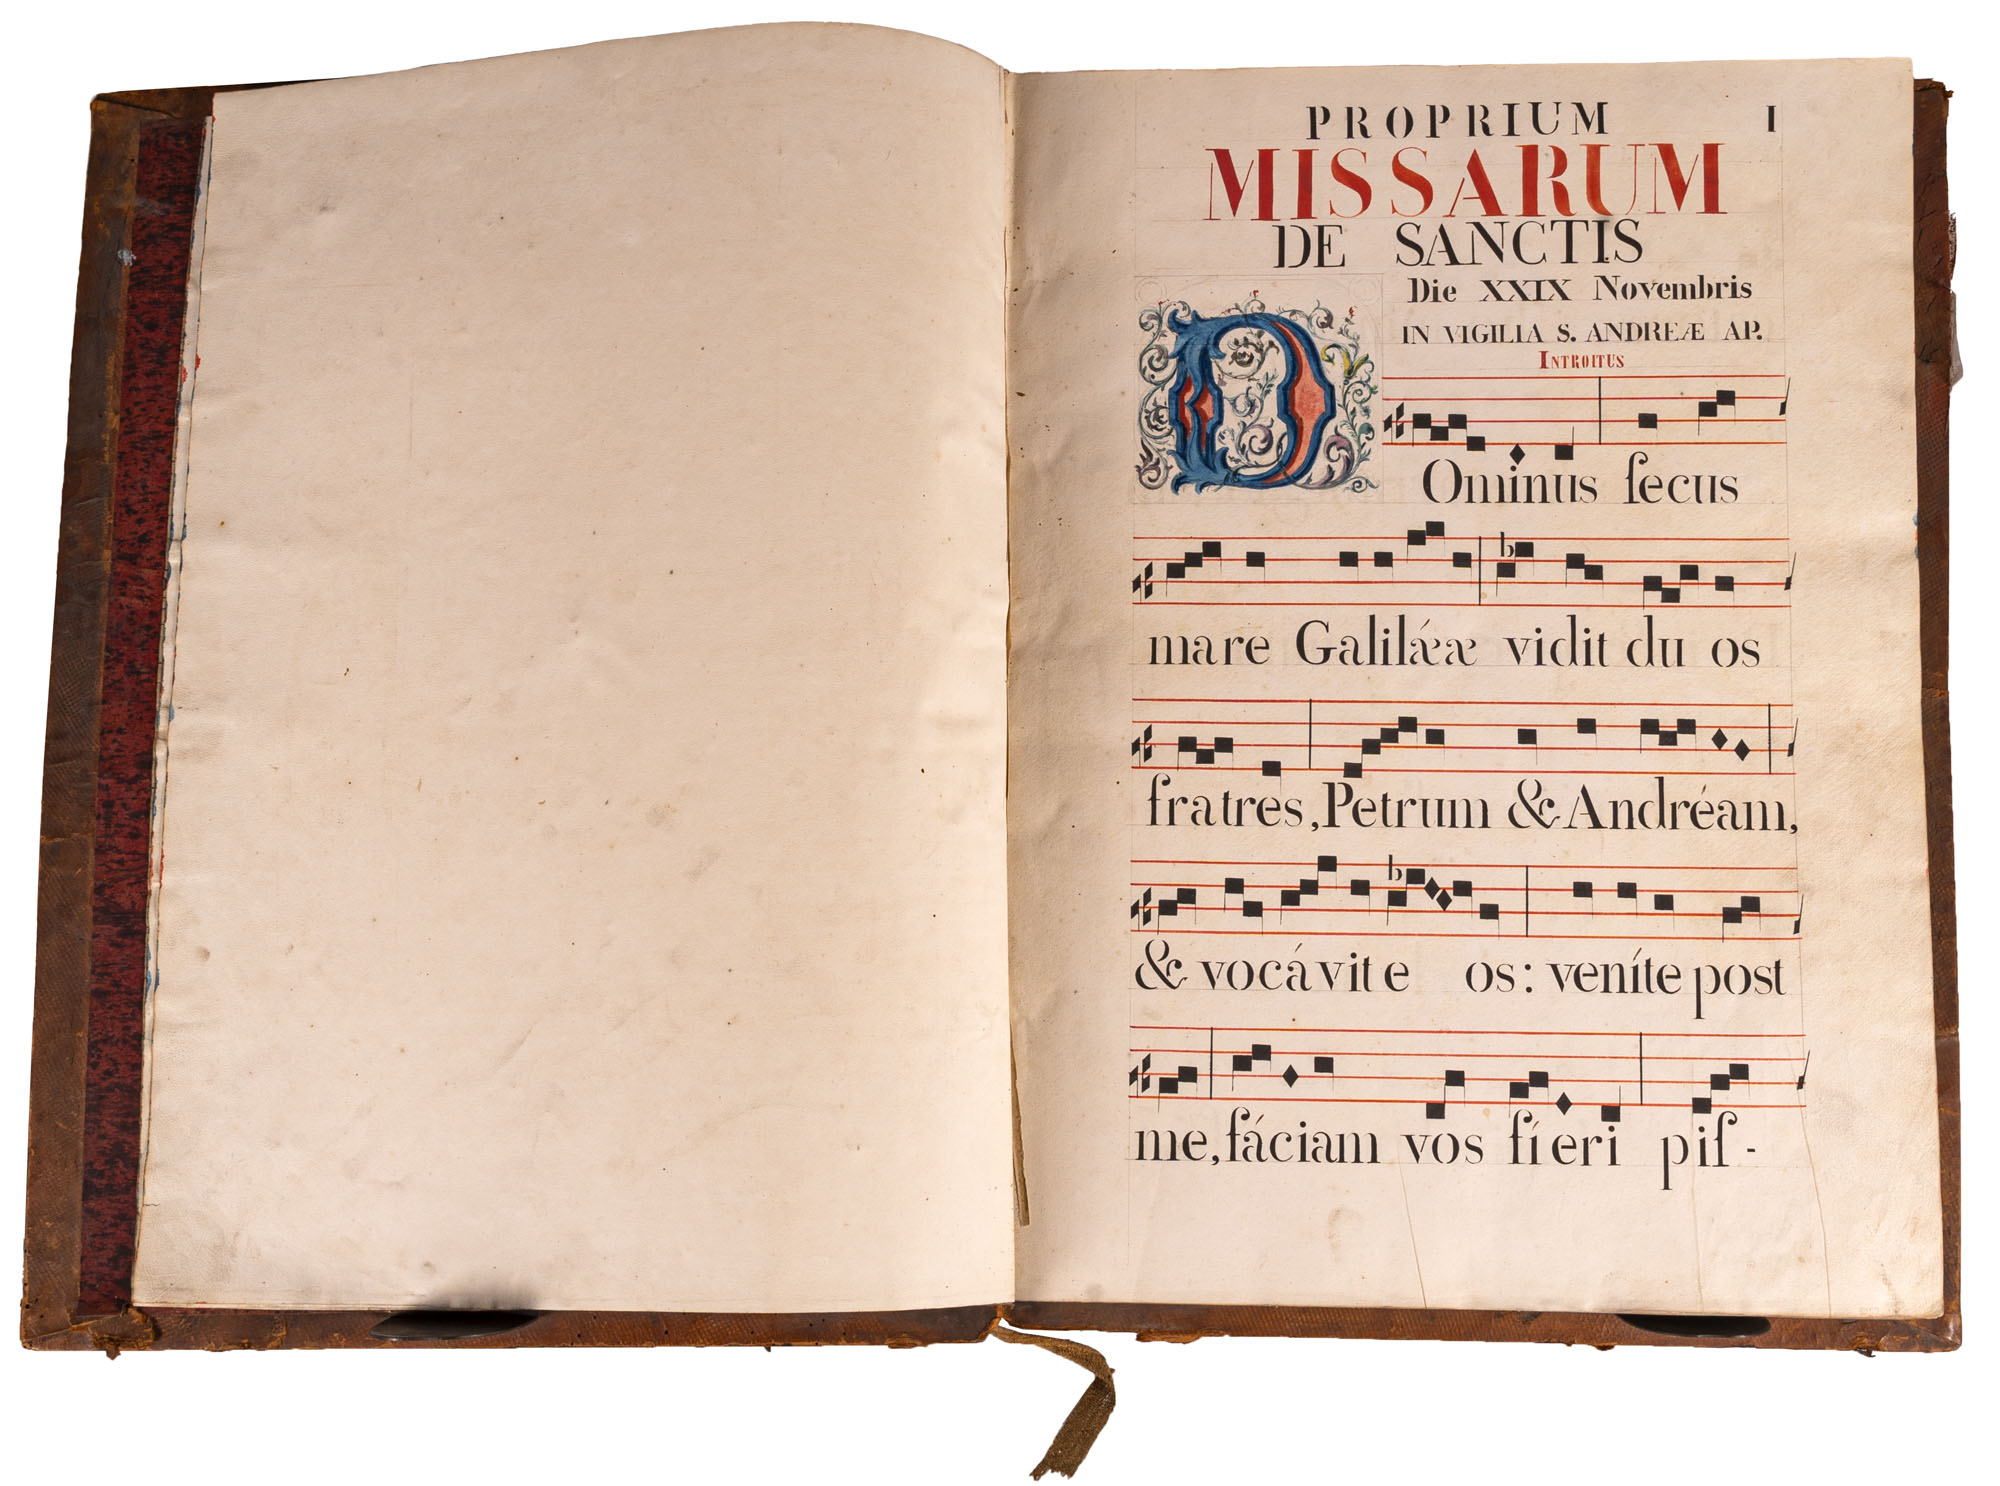 PROPRIUM I
MISSARUM
DE SANCTIS
Die XXIX Novembris
IN VIGILIA S. ANDREÆ AP.
INTROITUS
DOminus ſecus
mare Galilǽæ vidit du os
fratres, Petrum & Andréam,
& vocávit e os: veníte post
me, fáciam vos fíeri piſ-